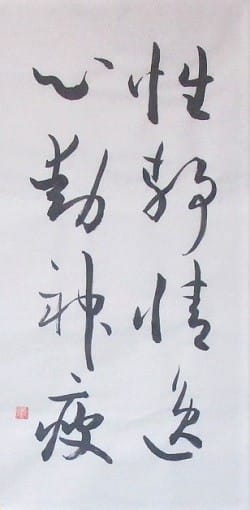 性静情逸
心動神疲